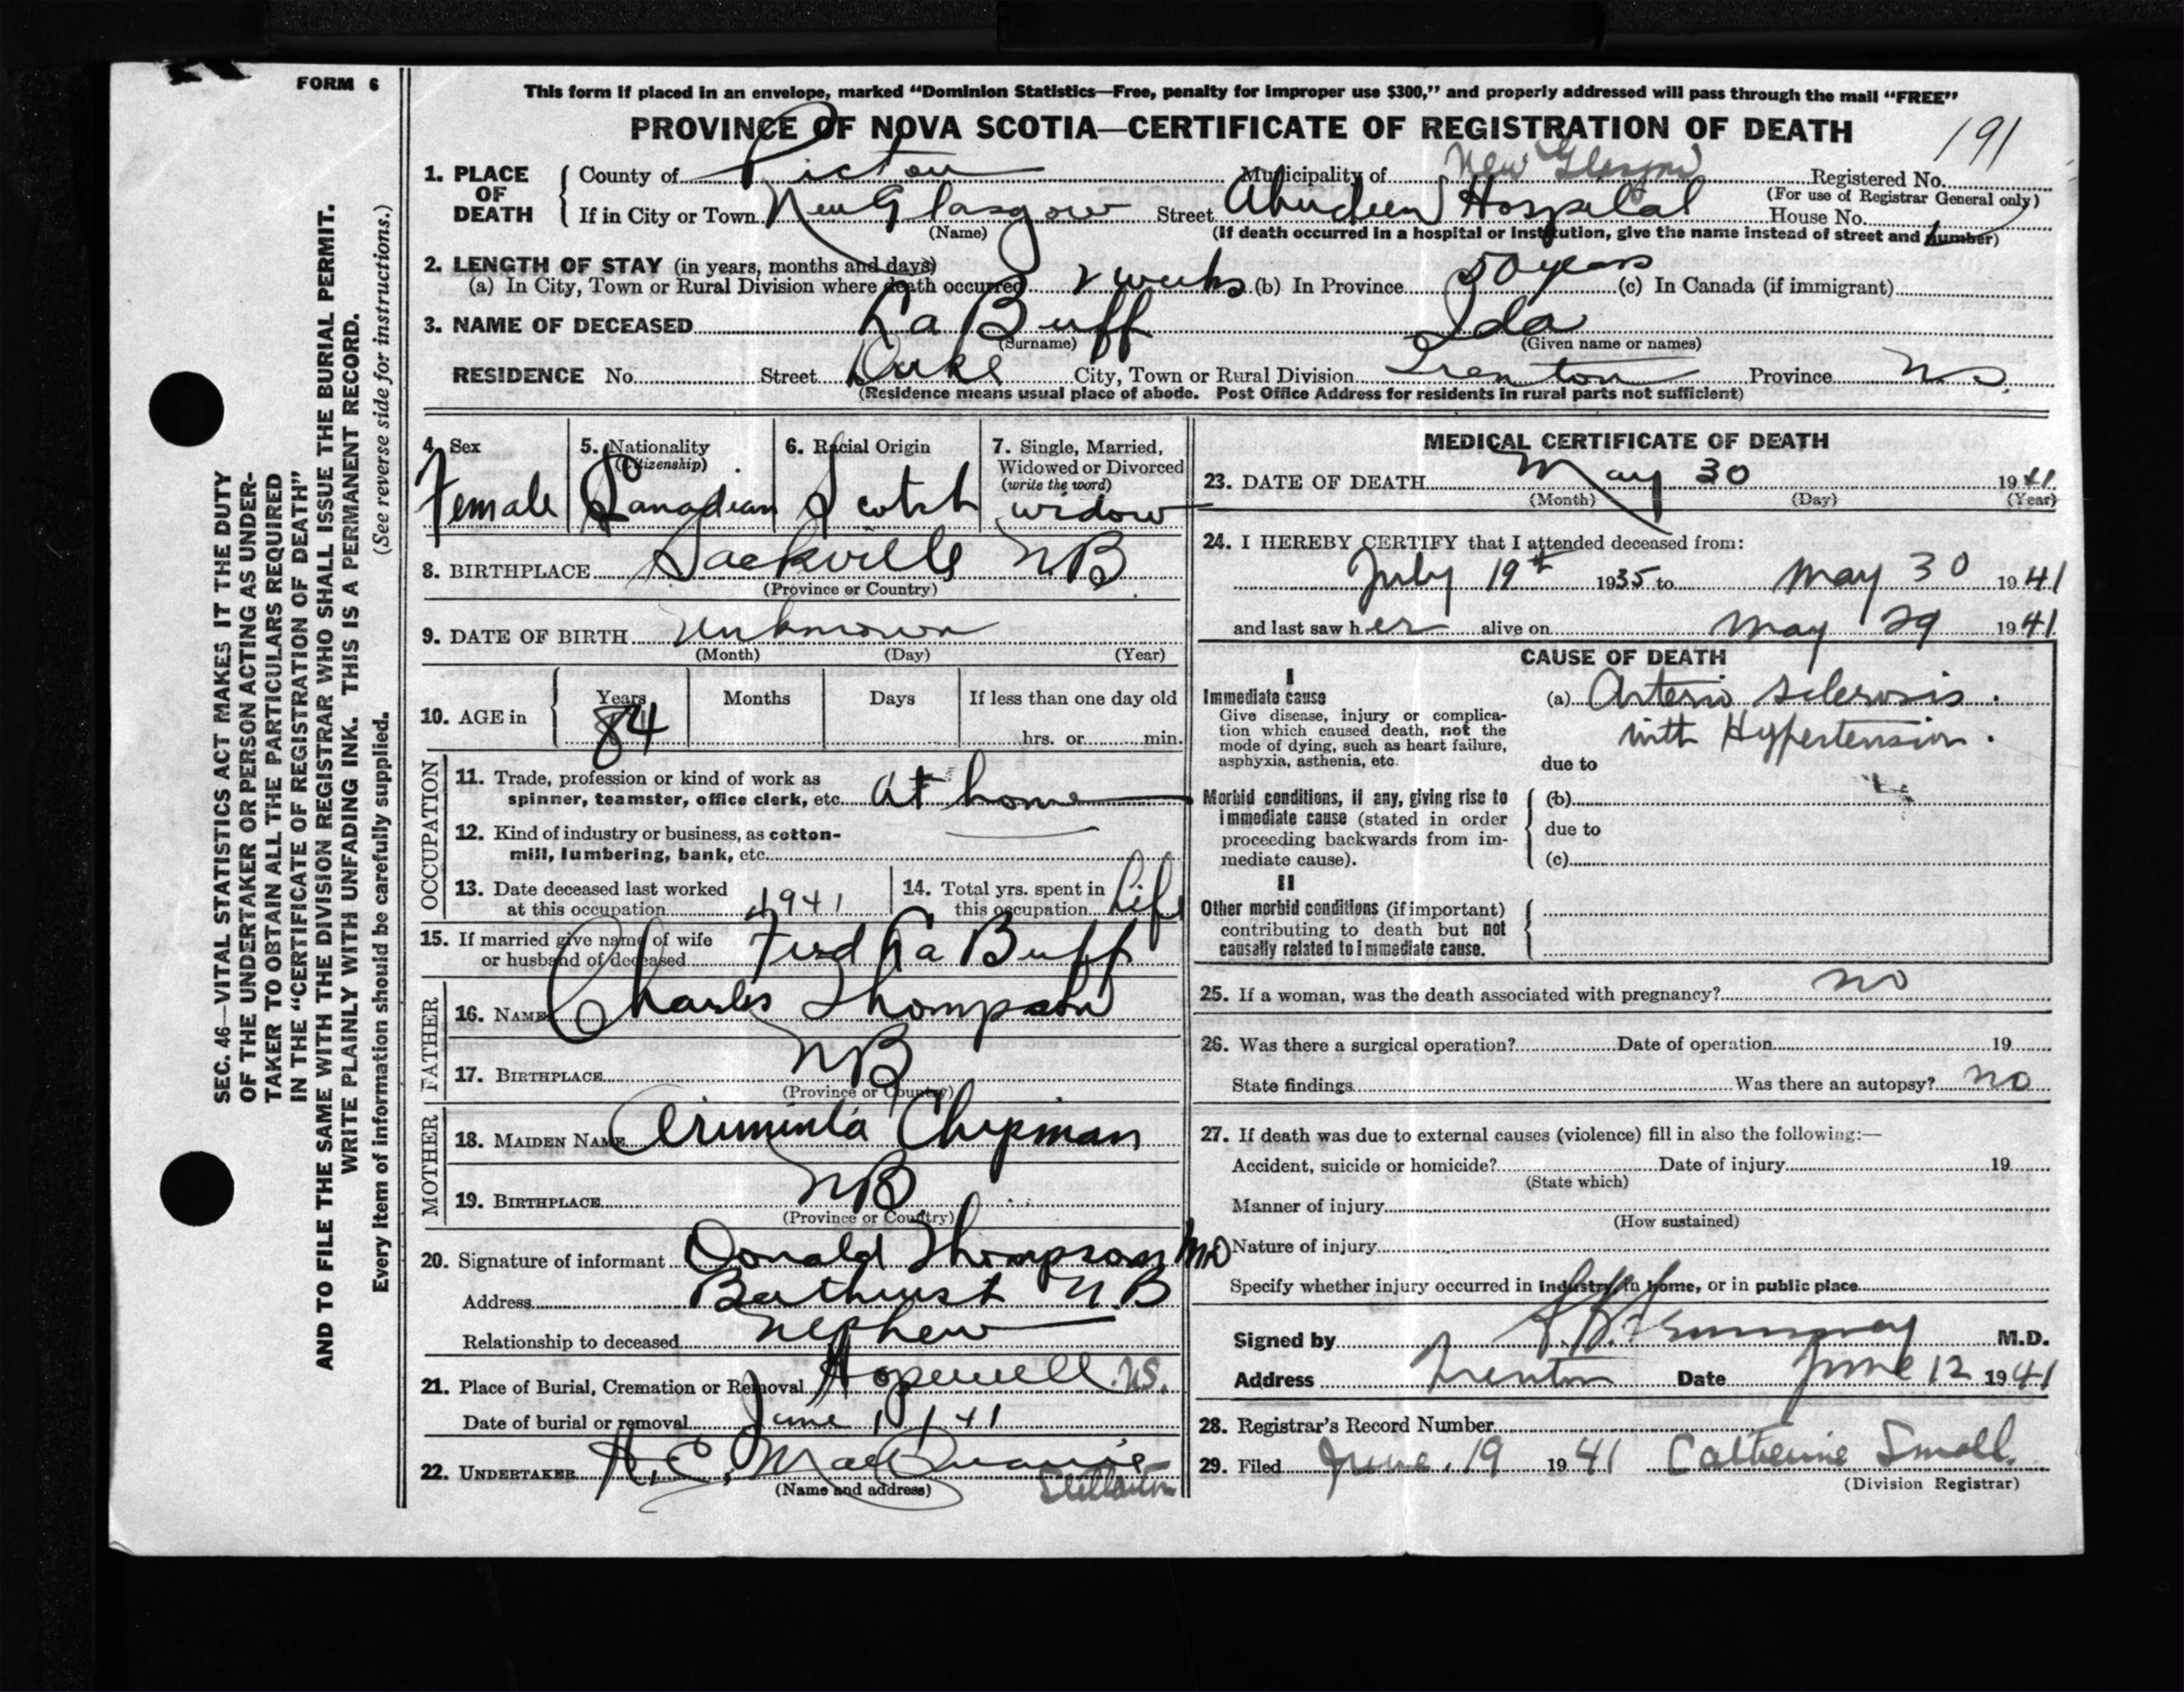 FORM 6
This form if placed in an envelope, marked “Dominion Statistics—Free, penalty for improper use $300,” and properly addressed will pass through the mail “FREE”
PROVINCE OF NOVA SCOTIA—CERTIFICATE OF REGISTRATION OF DEATH
191
1. PLACE OF DEATH
County of Pictou Municipality of New Glasgow Registered No.
(For use of Registrar General only)
If in City or Town New Glasgow Street Aberdeen Hospital House No.
(Name) (If death occurred in a hospital or institution, give the name instead of street and number)
2. LENGTH OF STAY (in years, months and days)
(a) In City, Town or Rural Division where death occurred 2 weeks (b) In Province 50 years (c) In Canada (if immigrant)
3. NAME OF DECEASED La Buff Ida
(Surname) (Given name or names)
RESIDENCE No. Street Duke City, Town or Rural Division Trenton Province N.S.
(Residence means usual place of abode. Post Office Address for residents in rural parts not sufficient)
4. Sex
Female
5. Nationality
(Citizenship)
Canadian
6. Racial Origin
Scotch
7. Single, Married,
Widowed or Divorced
(write the word)
widow
8. BIRTHPLACE Sackville N.B.
(Province or Country)
9. DATE OF BIRTH Unknown
(Month) (Day) (Year)
10. AGE in
Years Months Days If less than one day old
84 hrs. or min.
OCCUPATION
11. Trade, profession or kind of work as
spinner, teamster, office clerk, etc. At home
12. Kind of industry or business, as cotton-
mill, lumbering, bank, etc.
13. Date deceased last worked
at this occupation 1941
14. Total yrs. spent in
this occupation Life
15. If married give name of wife
or husband of deceased Fred La Buff
FATHER
16. NAME Charles Thompson
17. BIRTHPLACE NB
(Province or Country)
MOTHER
18. MAIDEN NAME Chipman
19. BIRTHPLACE NB
(Province or Country)
20. Signature of informant Donald Thompson MD
Address Bathurst N.B
Relationship to deceased Nephew
21. Place of Burial, Cremation or Removal Hopewell N.S.
Date of burial or removal June 1, 41
22. UNDERTAKER H. E. MacQuarrie
Stellarton
(Name and address)
MEDICAL CERTIFICATE OF DEATH
23. DATE OF DEATH May 30 1941
(Month) (Day) (Year)
24. I HEREBY CERTIFY that I attended deceased from:
July 19th 1935 to May 30 1941
and last saw her alive on May 29 1941
CAUSE OF DEATH
I
Immediate cause
Give disease, injury or complica-
tion which caused death, not the
mode of dying, such as heart failure,
asphyxia, asthenia, etc.
(a) Arterio sclerosis.
with Hypertension.
due to
Morbid conditions, if any, giving rise to
immediate cause (stated in order
proceeding backwards from im-
mediate cause).
(b)
due to
(c)
II
Other morbid conditions (if important)
contributing to death but not
causally related to immediate cause.
25. If a woman, was the death associated with pregnancy? no
26. Was there a surgical operation? Date of operation 19
State findings Was there an autopsy? no
27. If death was due to external causes (violence) fill in also the following:—
Accident, suicide or homicide? Date of injury 19
(State which)
Manner of injury
(How sustained)
Nature of injury
Specify whether injury occurred in industry, in home, or in public place
Signed by M.D.
Address Trenton Date June 12 1941
28. Registrar’s Record Number
29. Filed June 19 1941 Catherine Small
(Division Registrar)
SEC. 46—VITAL STATISTICS ACT MAKES IT THE DUTY
OF THE UNDERTAKER OR PERSON ACTING AS UNDER-
TAKER TO OBTAIN ALL THE PARTICULARS REQUIRED
IN THE “CERTIFICATE OF REGISTRATION OF DEATH”
AND TO FILE THE SAME WITH THE DIVISION REGISTRAR WHO SHALL ISSUE THE BURIAL PERMIT.
WRITE PLAINLY WITH UNFADING INK. THIS IS A PERMANENT RECORD.
Every item of information should be carefully supplied. (See reverse side for instructions.)